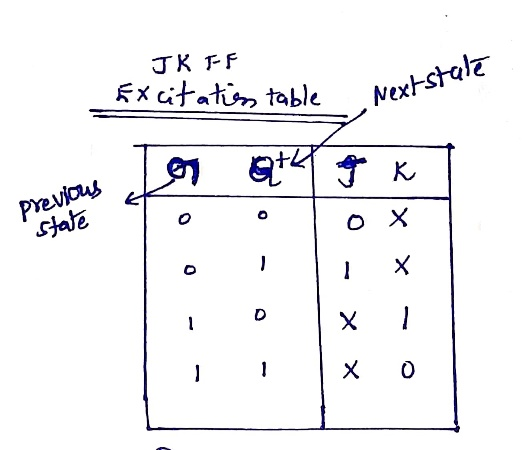 JK FF
Excitation table
Next state
previous state
Q Q+ J K
0 0 0 X
0 1 1 X
1 0 X 1
1 1 X 0